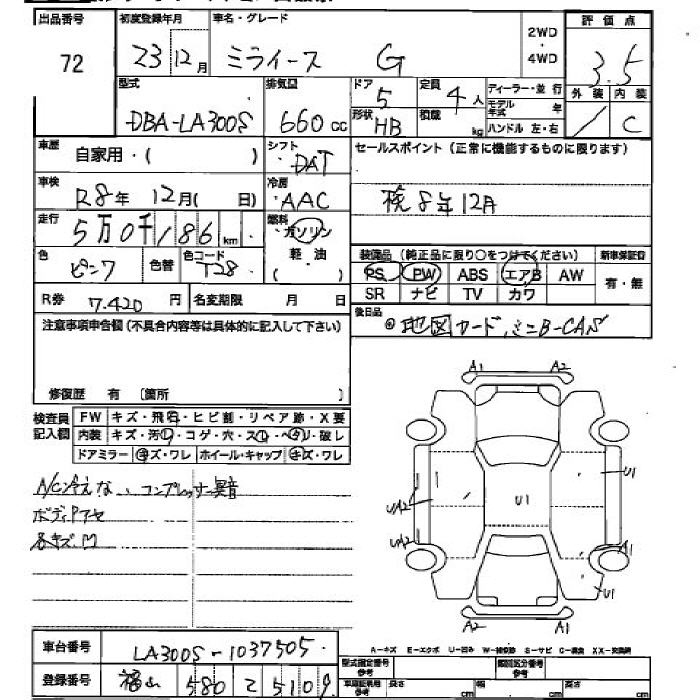 出品番号 初度登録年月 車名・グレード 2WD・4WD 評価点
72 23 12月 ミライース G 3.5
型式 排気量 ドア 定員 ディーラー・並行 外装 内装
DBA-LA300S 660 cc 5 4人 モデル年式 年
形状 HB 積載 kg ハンドル 左・右 / C
車歴 自家用・( ) シフト DAT セールスポイント(正常に機能するものに限ります)
車検 R8年 12月( 日) 冷房 AAC 検8年12月
走行 5万0千186km 燃料 ガソリン 軽・油
色 ピンク 色替 色コード T28
装備品(純正品に限り○をつけてください) 新車保証書
PS PW ABS エアB AW 有・無
SR ナビ TV カワ
R券 7.420円 名変期限 月 日
後日品 地図カード、ミニB-CAS
注意事項申告欄(不具合内容等は具体的に記入して下さい)
修復歴 有 〔箇所 〕
検査員記入欄 FW キズ・飛石・ヒビ割・リペア跡・X要
内装 キズ・汚レ・コゲ・穴・スレ・ヘタリ・破レ
ドアミラー キズ・ワレ ホイール・キャップ キズ・ワレ
A/C冷えない、コンプレッサー異音
ボディ
各キズ凹
A1 A2
U1
UA2 U1
UA2 A1
U1
A2 A1
A-キズ E-エクボ U-凹み W-補修跡 S-サビ C-腐食 XX-交換済
車台番号 LA300S-1037505
型式指定番号 参考 類別区分番号 参考
登録番号 福山 580 そ 5109
車庫証明用 参考 長さ cm 幅 cm 高さ cm